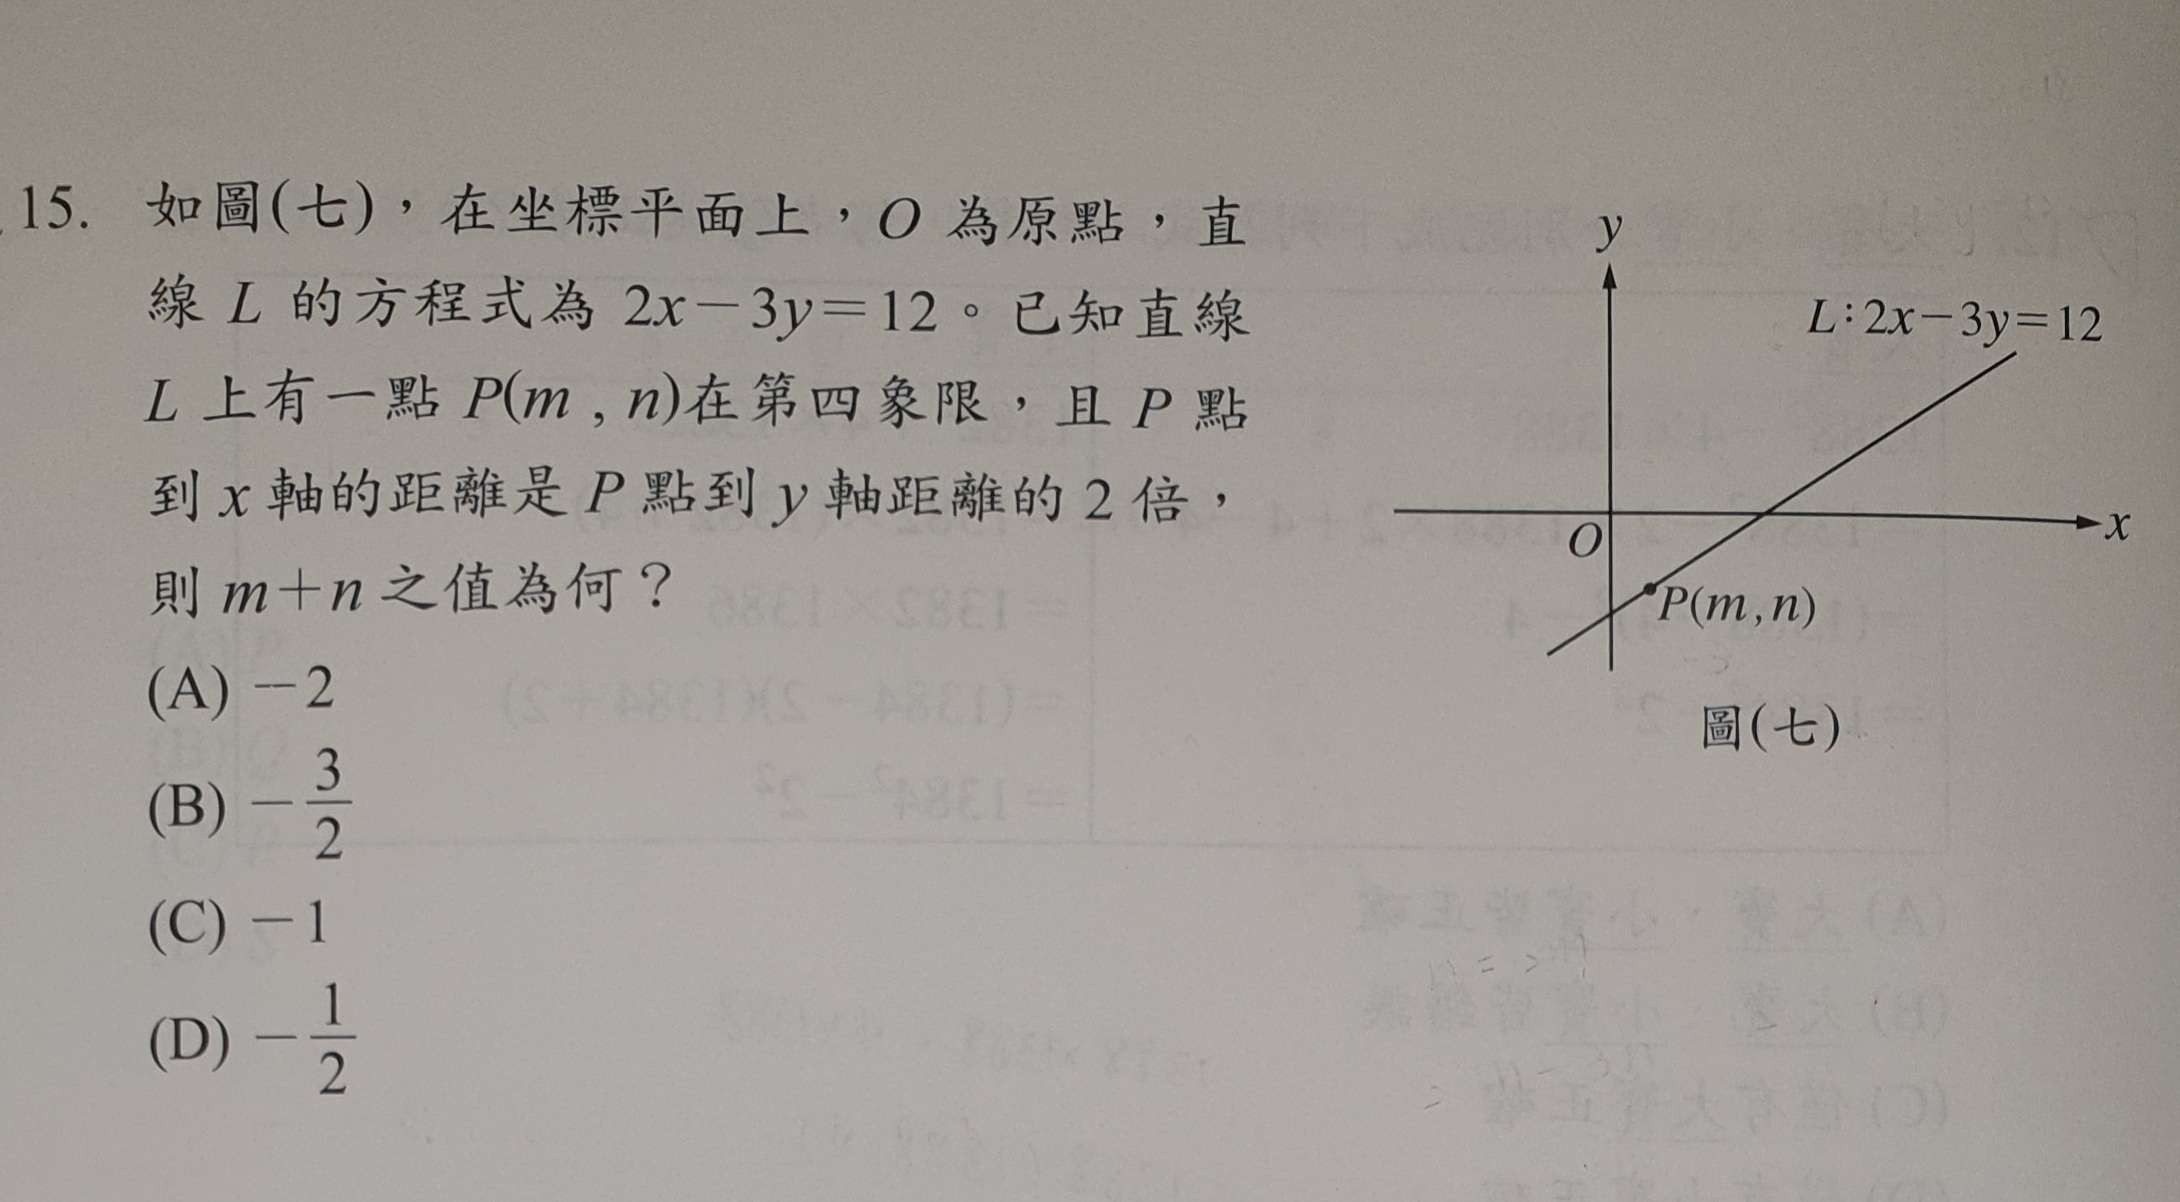 15. 如圖(七)，在坐標平面上，O 為原點，直
線 L 的方程式為 2x－3y＝12。已知直線
L 上有一點 P(m , n)在第四象限，且 P 點
到 x 軸的距離是 P 點到 y 軸距離的 2 倍，
則 m＋n 之值為何？
(A) －2
(B) －3/2
(C) －1
(D) －1/2
y
L：2x－3y＝12
O
x
P(m,n)
圖(七)